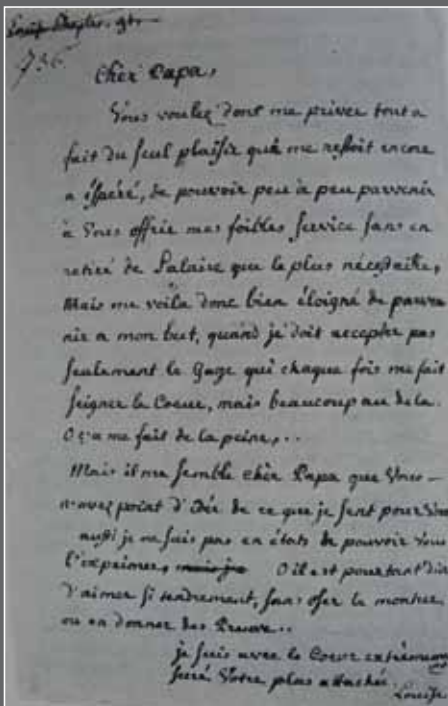 736.
cher Papa,
Vous voulez donc me priver tout a
fait du seul plaisir qui me restoit encore
a éspéré, de pouvoir peu à peu parvenir
à Vous offrir mes foibles service sans en
retiré de Salaire que le plus nécessaire,
Mais me voila donc bien éloigné de parve
nir a mon but, quand je doit accepter pas
seulement le Gage qui chaque fois me fait
seigner le Coeur, mais beaucoup au dela.
O ça me fait de la peine,..
Mais il me semble chèr Papa que Vous –
n'avez point d'Idée de ce que je sent pour Vous
aussi je ne suis pas en états de pouvoir Vous
l'exprimer, mais je O il est pourtant dur
d'aimer si tendrement, sans oser le montrer
ou en donner des Preuve..
je suis avec le Coeur extrémement
serré Votre plus attachée
Louise